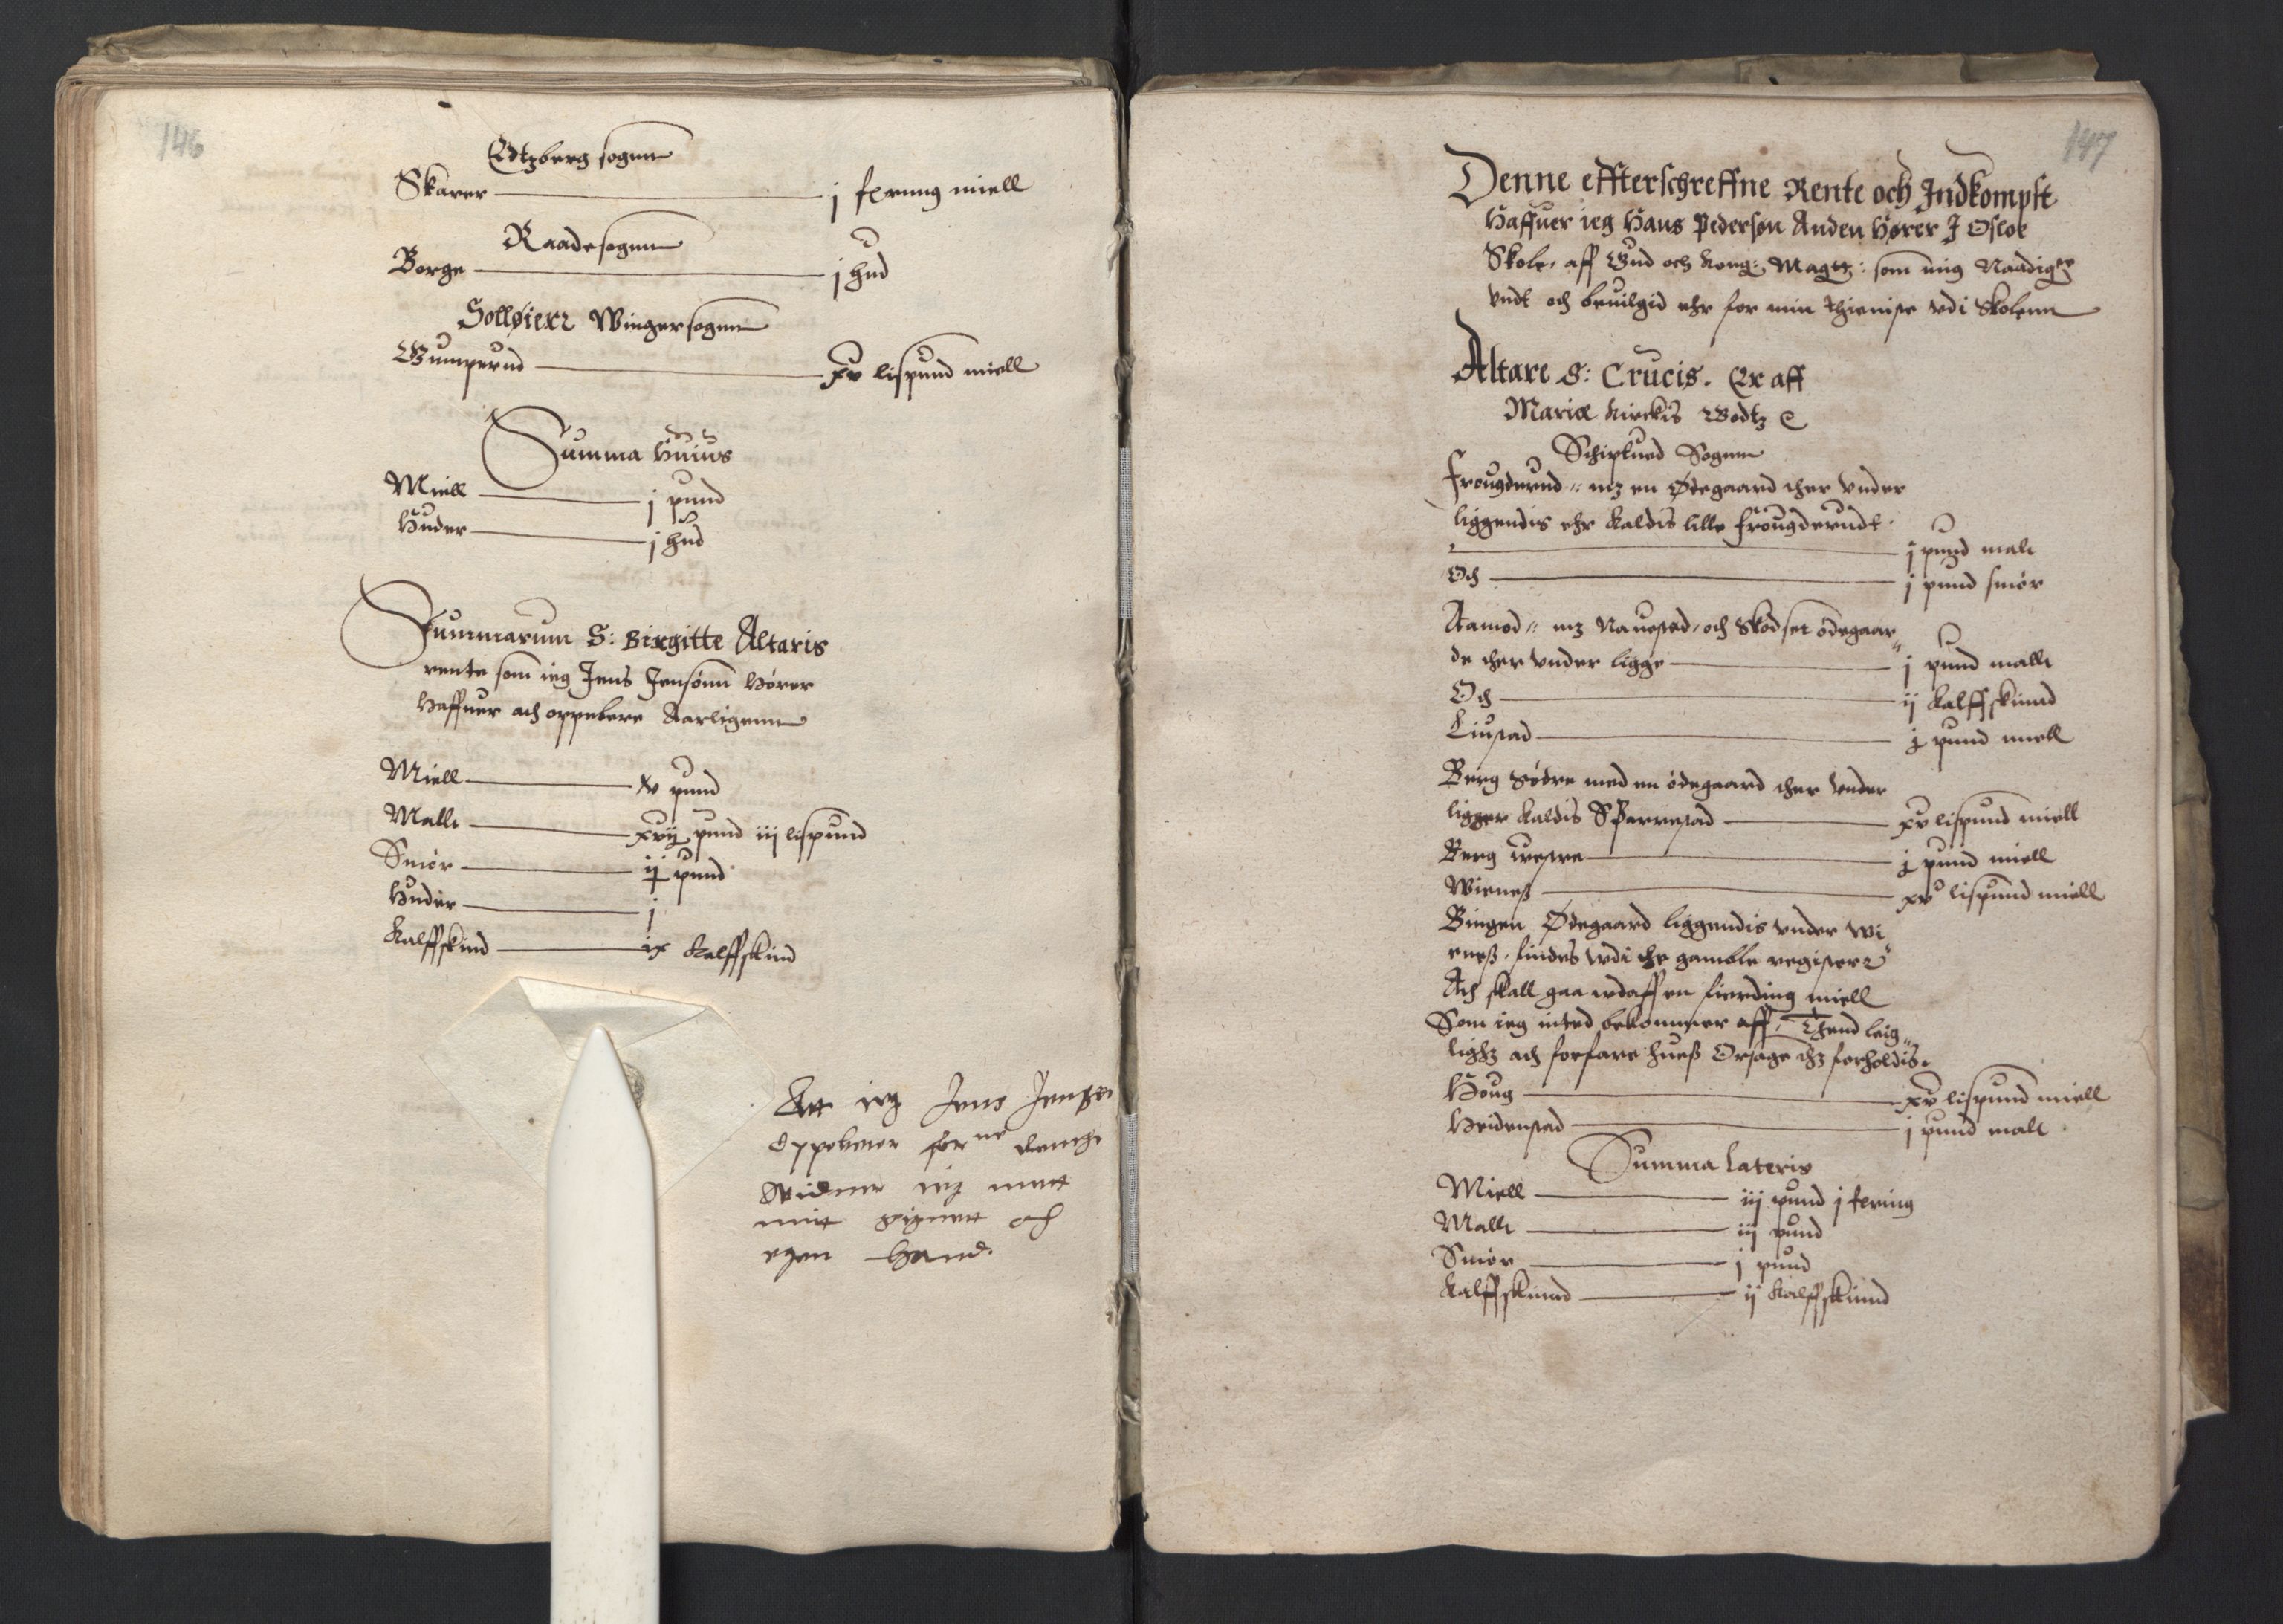 146
Edtzberg sognn
Skarer j ferning miell
Raade sognn
Borge j hud
Solløierr Winger sognn
Gumperud xv lispund miell
Summa huius
Miell j pund
Huder j hud
Summarum S: Birgitte Altaris
rente som ieg Jens Jensönn Hörer
haffuer ath oppebere Aarligenn
Miell xv pund
Mallt xvij pund iij lispund
Smör ij pund
Huder j
Kalffskind ix Kalffskind
Att ieg Jens Jensen
Oppeberer forne Rennthe
Widner ieg mett
mitt Zignett och
egen Hand.
147
Denne effterschreffne Rente och Indkompst
Haffuer ieg Hans Pedersøn Anden Hører I Osloe
Skole, aff Gud och Kong: Magtz: som mig Naadigst
vndt och beuilgid ehr for min thieniste vdi Skolenn
Altare S: Crucis. Er aff
Mariæ Kirckis Godtz
Schiptued Sogenn
Frougderud mz en Ødegaard ther vnder
liggendis ehr kaldis lille Frougderudt
j pund malt
Och j pund smör
Aamod mz Nauestad och Skodset ödegaar
de ther vnder ligge j pund mallt
Och ij Kalffskind
Liustad j pund miell
Berg Södre med en ödegaard ther vnder
ligger kaldis Sparrestad xv lispund miell
Berg westre j pund miell
Wieness xv lispund miell
Bingen Ødegaard liggendis vnder Wi
eness, findes wdi the gamble registerr
Ath skall gaa wdaff en fierding miell
Som ieg inted bekommer aff, Thend leig
lighz ath forfare huess Orsage thz forholdis.
Houg xv lispund miell
Heidenstad j pund malt
Summa Lateris
Miell iij pund j fering
Mallt iij pund
Smör j pund
Kalffskinnd ij Kalffskinnd